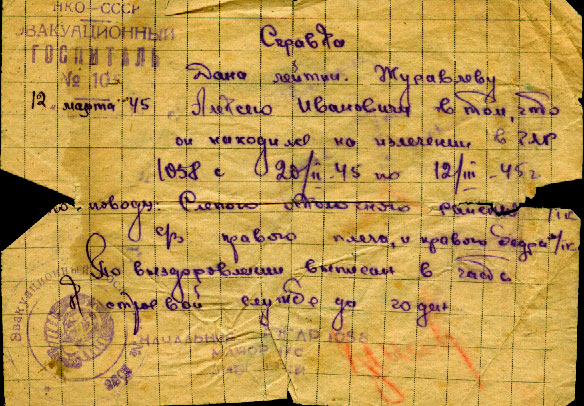 НКО–СССР
ЭВАКУАЦИОННЫЙ
ГОСПИТАЛЬ
№ 105
Справка
Дана лейтен. Журавлеву
12 марта 45 Алексею Ивановичу в том, что
он находился на излечении в
1058 с 20/II-45 по 12/III-45 г
поводу. Слепого ранения
с/з правого плеча, и правого бедра
По выздоровлении выписан в часть
К строевой службе годен
Эвакуационный
НАЧАЛЬНИК 1058
МАЙОР М/С